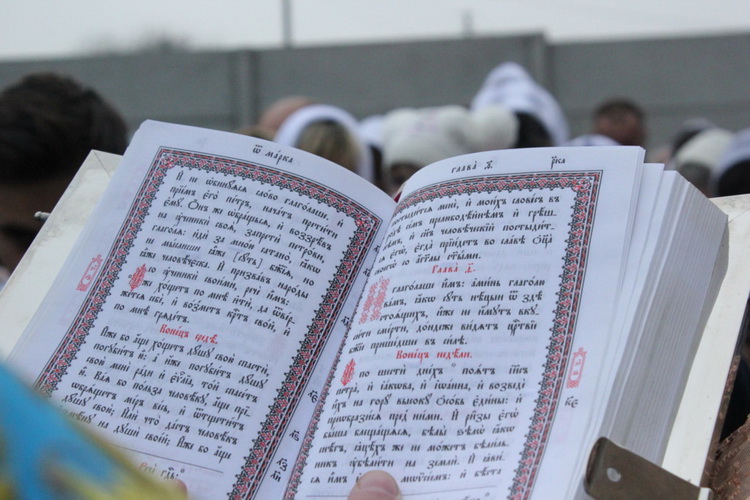 ѿ ма́рка
И҆ не ѡ҆бинꙋ́ѧсѧ сло́во глаго́лаше. и҆
прїи́мъ є҆го̀ пе́тръ, нача́тъ прети́ти
є҆мꙋ̀. Ѻ҆́нъ же ѡ҆бра́щьсѧ, и҆ воззрѣ́въ
на ᲂу҆чн҃кѝ своѧ̑, запретѝ петро́ви
глаго́лѧ: и҆дѝ за мно́ю сатано̀, ꙗ҆́кѡ
не мы́слиши ꙗ҆̀же [сꙋ́ть] бж҃їѧ, но
ꙗ҆̀же человѣ́чєска. И҆ призва́въ наро́ды
со ᲂу҆чн҃ки̑ свои́ми, речѐ и҆̀мъ:
и҆́же хо́щетъ по мнѣ̀ и҆тѝ, да ѿве́р-
жетсѧ себє̀, и҆ во́зметъ крⷭ҇тъ сво́й, и҆
по мнѣ̀ грѧде́тъ.
Коне́цъ недѣ́ли.
И҆́же бо а҆́ще хо́щетъ дꙋ́шꙋ свою̀ спⷭ҇тѝ,
погꙋби́тъ ю҆̀: а҆ и҆́же погꙋби́тъ дꙋ́шꙋ
свою̀ менѐ ра́ди и҆ є҆ѵⷢ҇лїа, то́й спасе́тъ
ю҆̀. Ка́ѧ бо по́льза человѣ́кꙋ, а҆́ще прї-
ѡбрѧ́щетъ мі́ръ ве́сь, и҆ ѡ҆тщети́тъ
дꙋ́шꙋ свою̀; И҆лѝ что̀ да́стъ человѣ́къ
на дꙋшѝ свое́й; И҆́же бо а҆́ще
глава̀ ѳ҃.
постыди́тсѧ менѐ, и҆ мои́хъ слове́съ въ
ро́дѣ се́мъ прелюбодѣ́йнѣмъ и҆ грѣ́ш-
нѣмъ, и҆ сн҃ъ человѣ́ческїй постыди́т-
сѧ є҆гѡ̀, є҆гда̀ прїи́детъ во сла́вѣ ѻ҆ц҃а̀
своегѡ̀ со а҆́гг҃лы ст҃ы́ми.
Глава̀ ѳ҃.
глаго́лаше и҆̀мъ: а҆ми́нь глаго́лю
ва́мъ, ꙗ҆́кѡ сꙋ́ть нѣ́цыи ѿ здѣ̀
стоѧ́щихъ, и҆̀же не и҆́мꙋтъ вкꙋ-
си́ти сме́рти, до́ндеже ви́дѧтъ црⷭ҇твїе
бж҃їе прише́дшее въ си́лѣ.
Коне́цъ недѣ́ли.
по шестѝ дни́хъ поѧ́тъ і҆и҃съ
петра̀, и҆ і҆а́кѡва, и҆ і҆ѡа́нна, и҆ возведѐ
и҆̀хъ на горꙋ̀ высокꙋ̀ ѻ҆со́бь є҆ди̑ны: и҆
преѡбрази́сѧ пред̾ ни́ми. И҆ ри̑зы є҆гѡ̀
бы́ша блеща́щѧсѧ, бѣлы̑ ѕѣлѡ̀ ꙗ҆́кѡ
снѣ́гъ, ꙗ҆цѣ́хже не мо́жетъ бѣли́ль-
никъ ᲂу҆бѣли́ти на землѝ. И҆ ꙗ҆ви́сѧ
и҆̀мъ и҆лїа̀ съ мѡѷсе́омъ: и҆ бѣ́ста